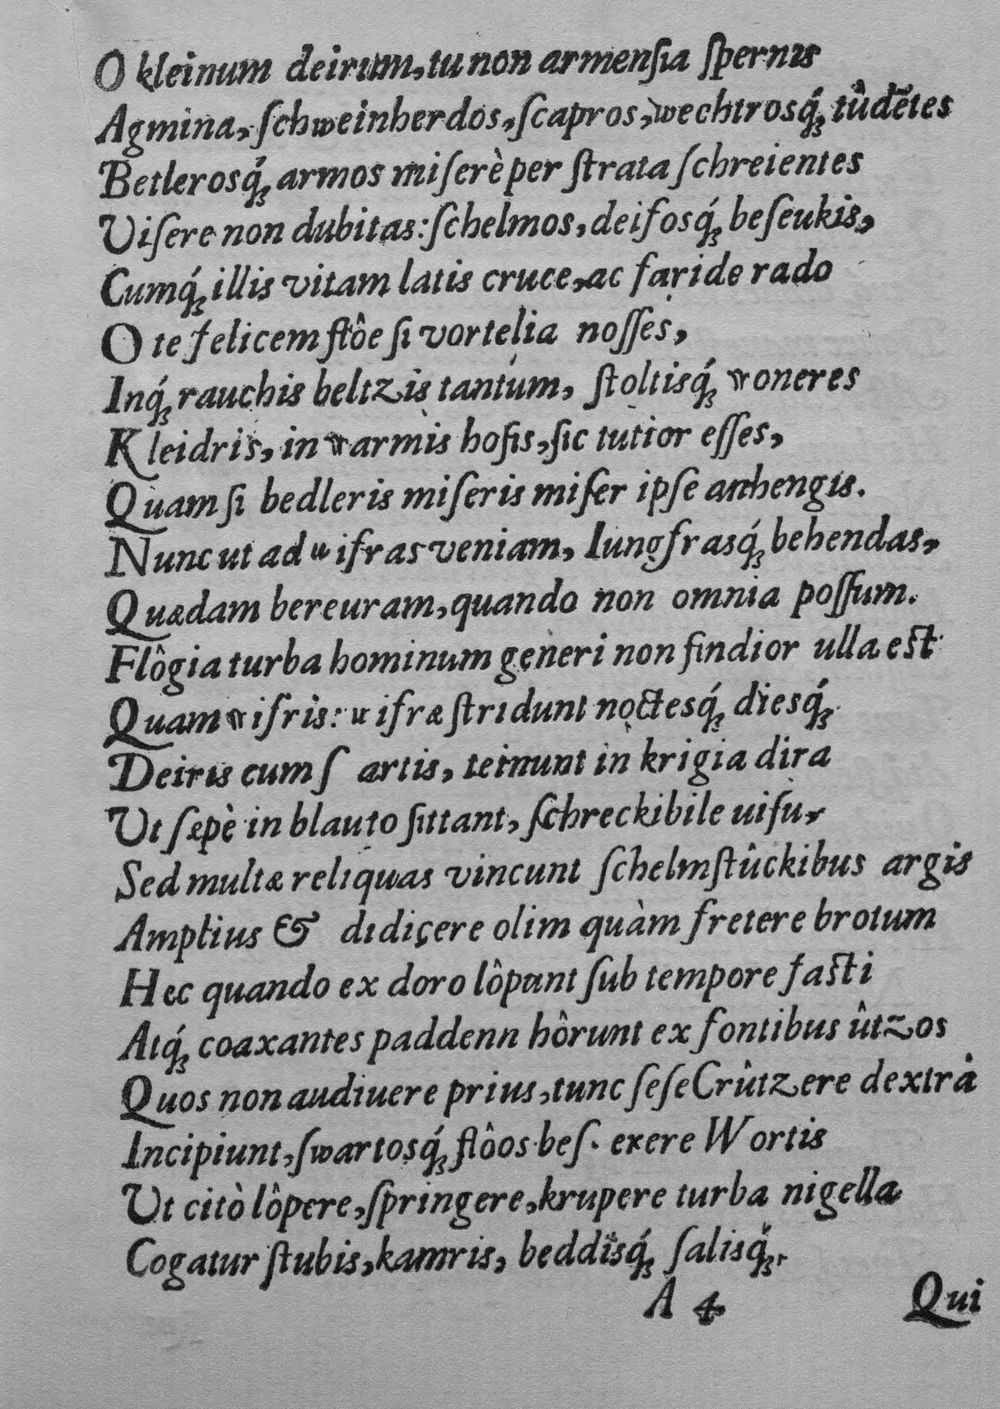 O kleinum deirum, tu non armenſia ſpernis
Agmina, ſchweinherdos, ſcapros, wechtrosq́ꝫ tûdẽtes
Betlerosq́ꝫ armos miſerè per ſtrata ſchreientes
Viſere non dubitas: ſchelmos, deifosq́ꝫ beſeukis,
Cumq́ꝫ illis vitam latis cruce, ac faride rado
O te felicem flôe ſi vortelia noſſes,
Inq́ꝫ rauchis beltzis tantum, ſtoltisq́ꝫ woneres
Kleidris, in warmis hoſis, ſic tutior eſſes,
Quam ſi bedleris miſeris miſer ipſe anhengis.
Nunc ut ad wifras veniam, Iungfrasq́ꝫ behendas,
Quædam bereuram, quando non omnia poſſum.
Flôgia turba hominum generi non findior ulla est
Quam wifris: wifræ ſtridunt noctesq́ꝫ diesq́ꝫ
Deiris cum ſ artis, ternunt in krigia dira
Ut ſæpè in blauto ſittant, ſchreckibile uiſu,
Sed multæ reliquas vincunt ſchelmſtûckibus argis
Amplius & didicere olim quàm fretere brotum
Hec quando ex doro lôpunt ſub tempore faſti
Atq́ꝫ coaxantes paddenn hôrunt ex fontibus ûtzos
Quos non audiuere prius, tunc ſeſe Crûtzere dextrâ
Incipiunt, ſwartosq́ꝫ flôos beſ. exere Wortis
Ut citò lôpere, ſpringere, krupere turba nigella
Cogatur ſtubis, kamris, beddisq́ꝫ ſalisq́ꝫ,
A 4 Qui